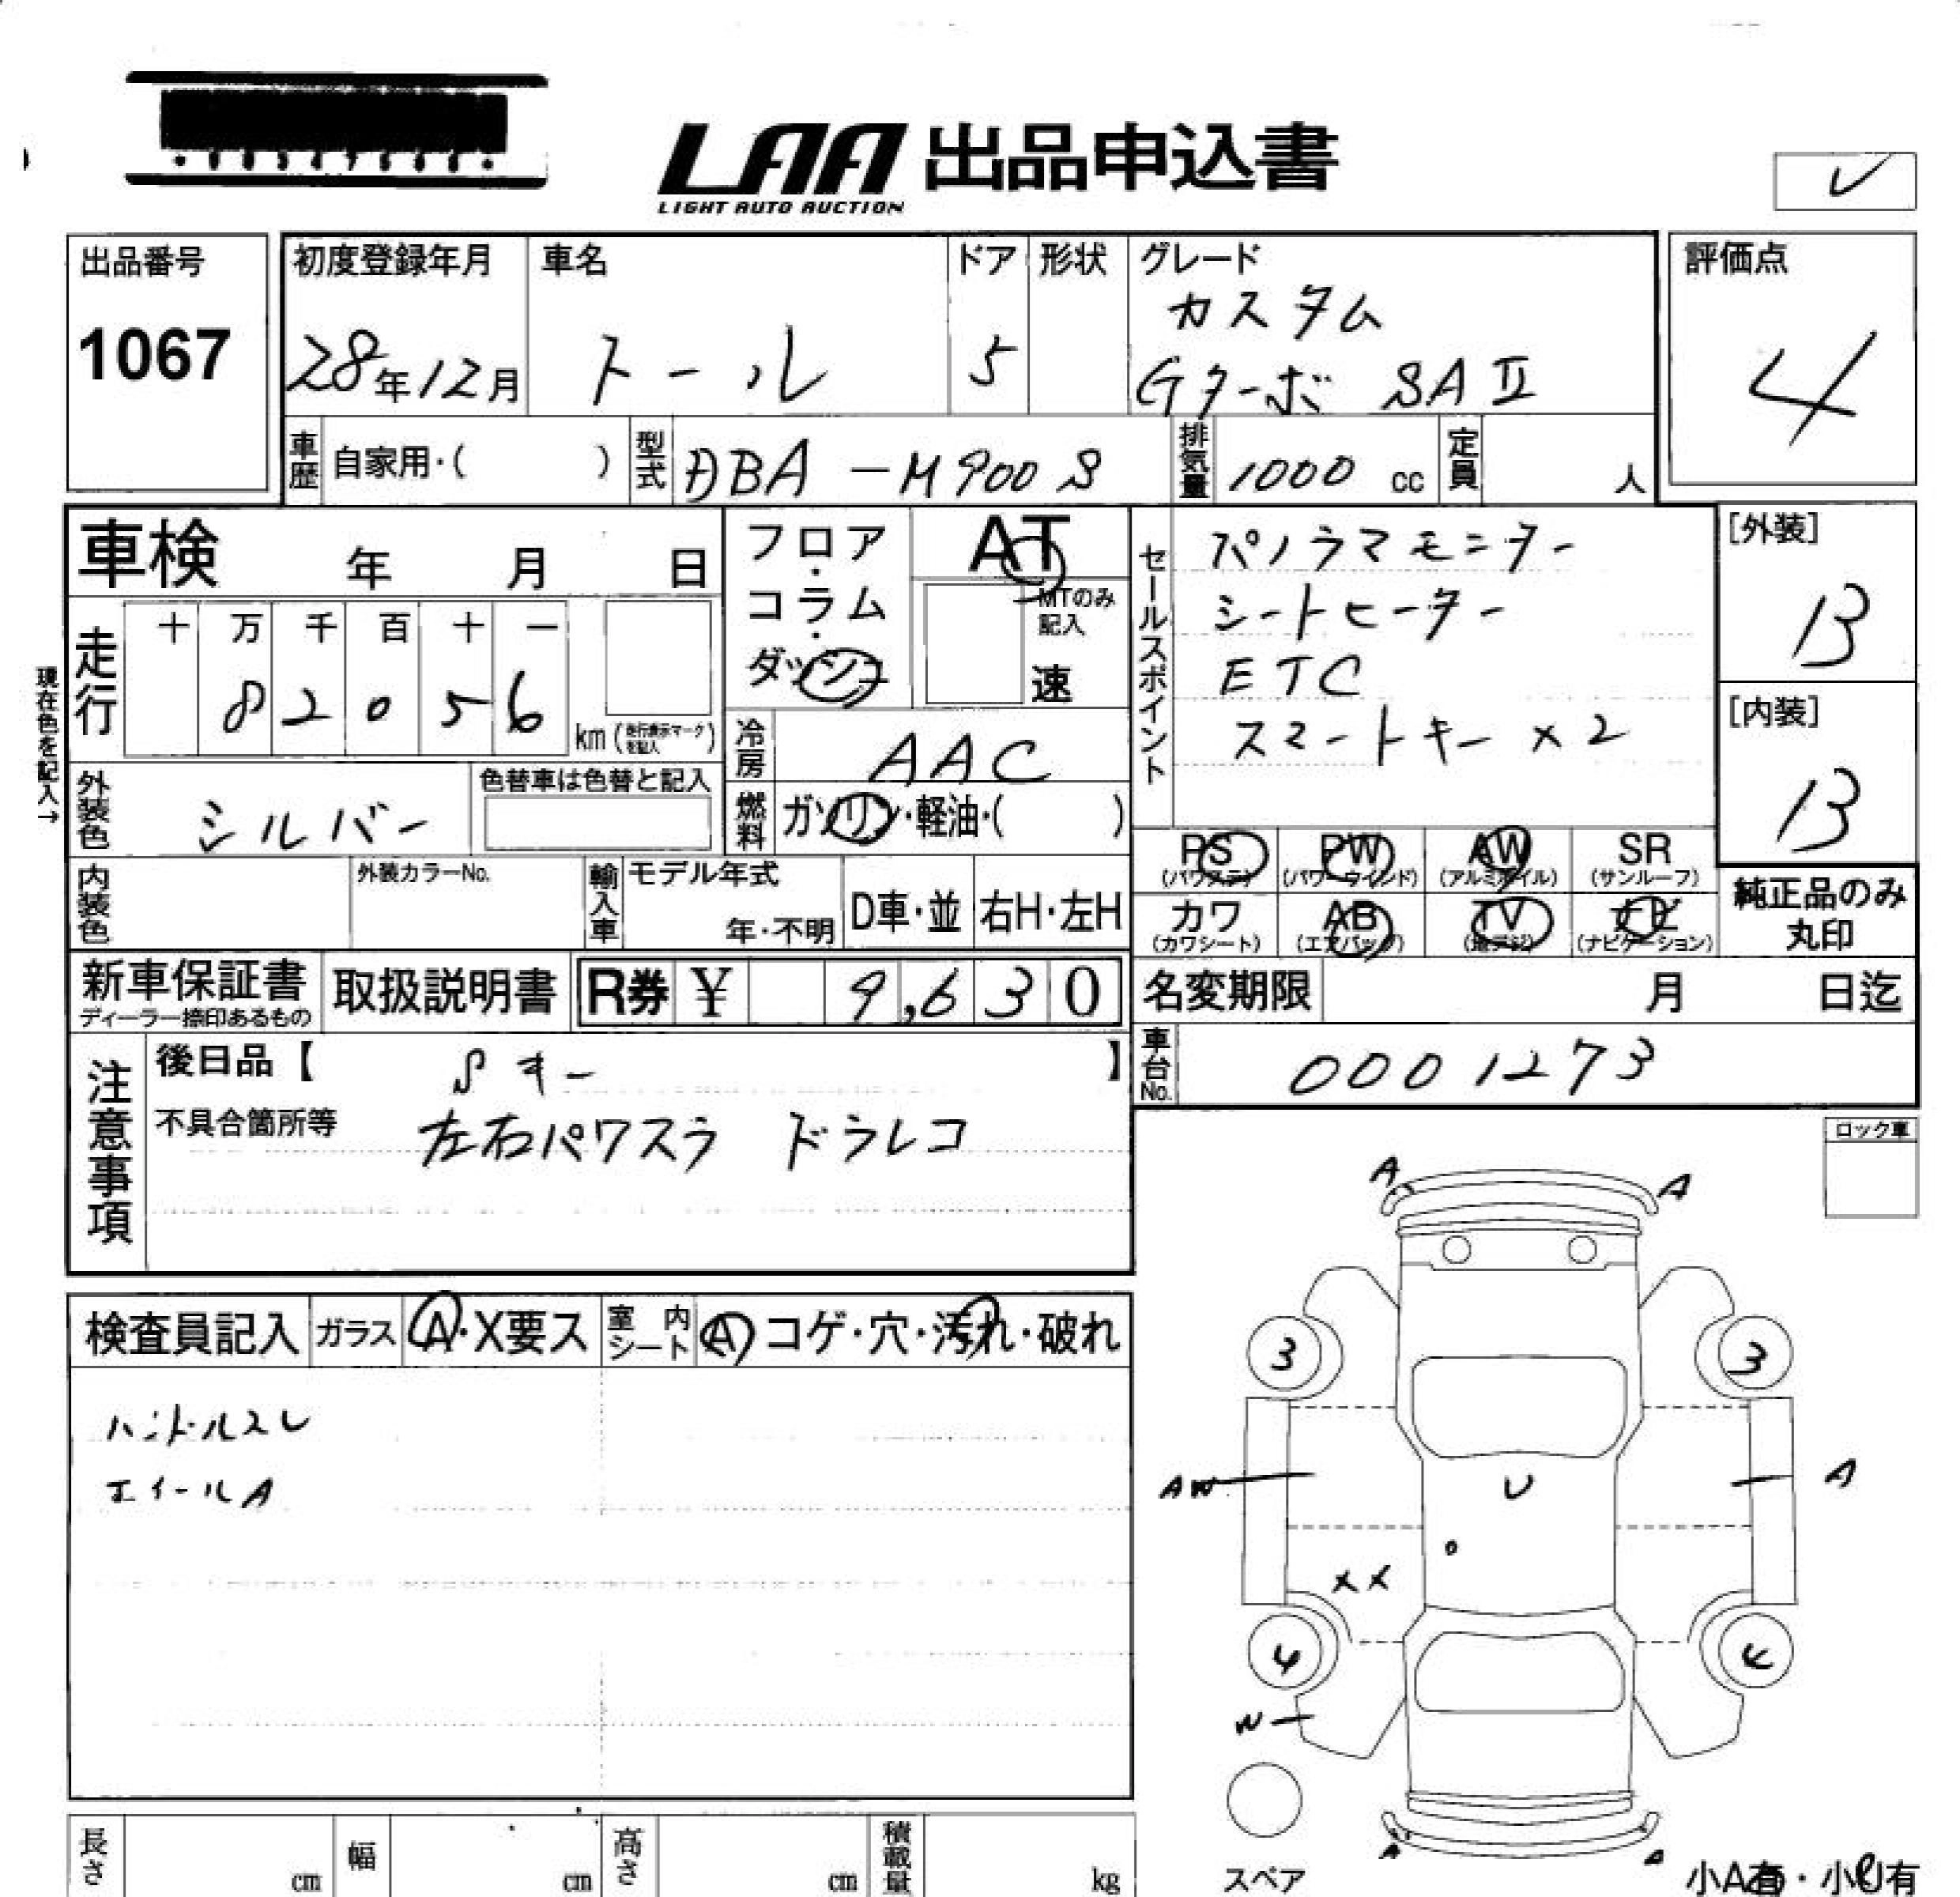 LAA 出品申込書
LIGHT AUTO AUCTION
レ
出品番号
1067
初度登録年月
28年12月
車名
トール
ドア
5
形状
グレード
カスタム
Gターボ SAⅡ
評価点
4
車歴 自家用・( )
型式 DBA-M900S
排気量 1000 cc
定員 人
車検 年 月 日
フロア・コラム・ダッシュ
AT
MTのみ記入
速
セールスポイント
パノラマモニター
シートヒーター
ETC
スマートキー×2
[外装]
B
[内装]
B
現在色を記入→
走行
十 万 千 百 十 一
8 2 0 5 6
km(走行表示マークを記入)
冷房 AAC
燃料 ガソリン・軽油・( )
外装色 シルバー
色替車は色替と記入
PS (パワステ)
PW (パワーウィンド)
AW (アルミホイル)
SR (サンルーフ)
カワ (カワシート)
AB (エアバッグ)
TV (地デジ)
ナビ (ナビゲーション)
純正品のみ
丸印
内装色
外装カラーNo.
輸入車 モデル年式
年・不明
D車・並
右H・左H
新車保証書
ディーラー捺印あるもの
取扱説明書
R券 ¥ 9,630
名変期限 月 日迄
車台No. 0001273
注意事項
後日品【 Sキー 】
不具合箇所等 左右パワスラ ドラレコ
ロック車
検査員記入
ガラス A・X要ス
室内シート A コゲ・穴・汚れ・破れ
ハンドルスレ
ホイールA
A A
3 3
AW U A
XX
4 4
W
スペア
A A
長さ cm
幅 cm
高さ cm
積載量 kg
小A有・小U有